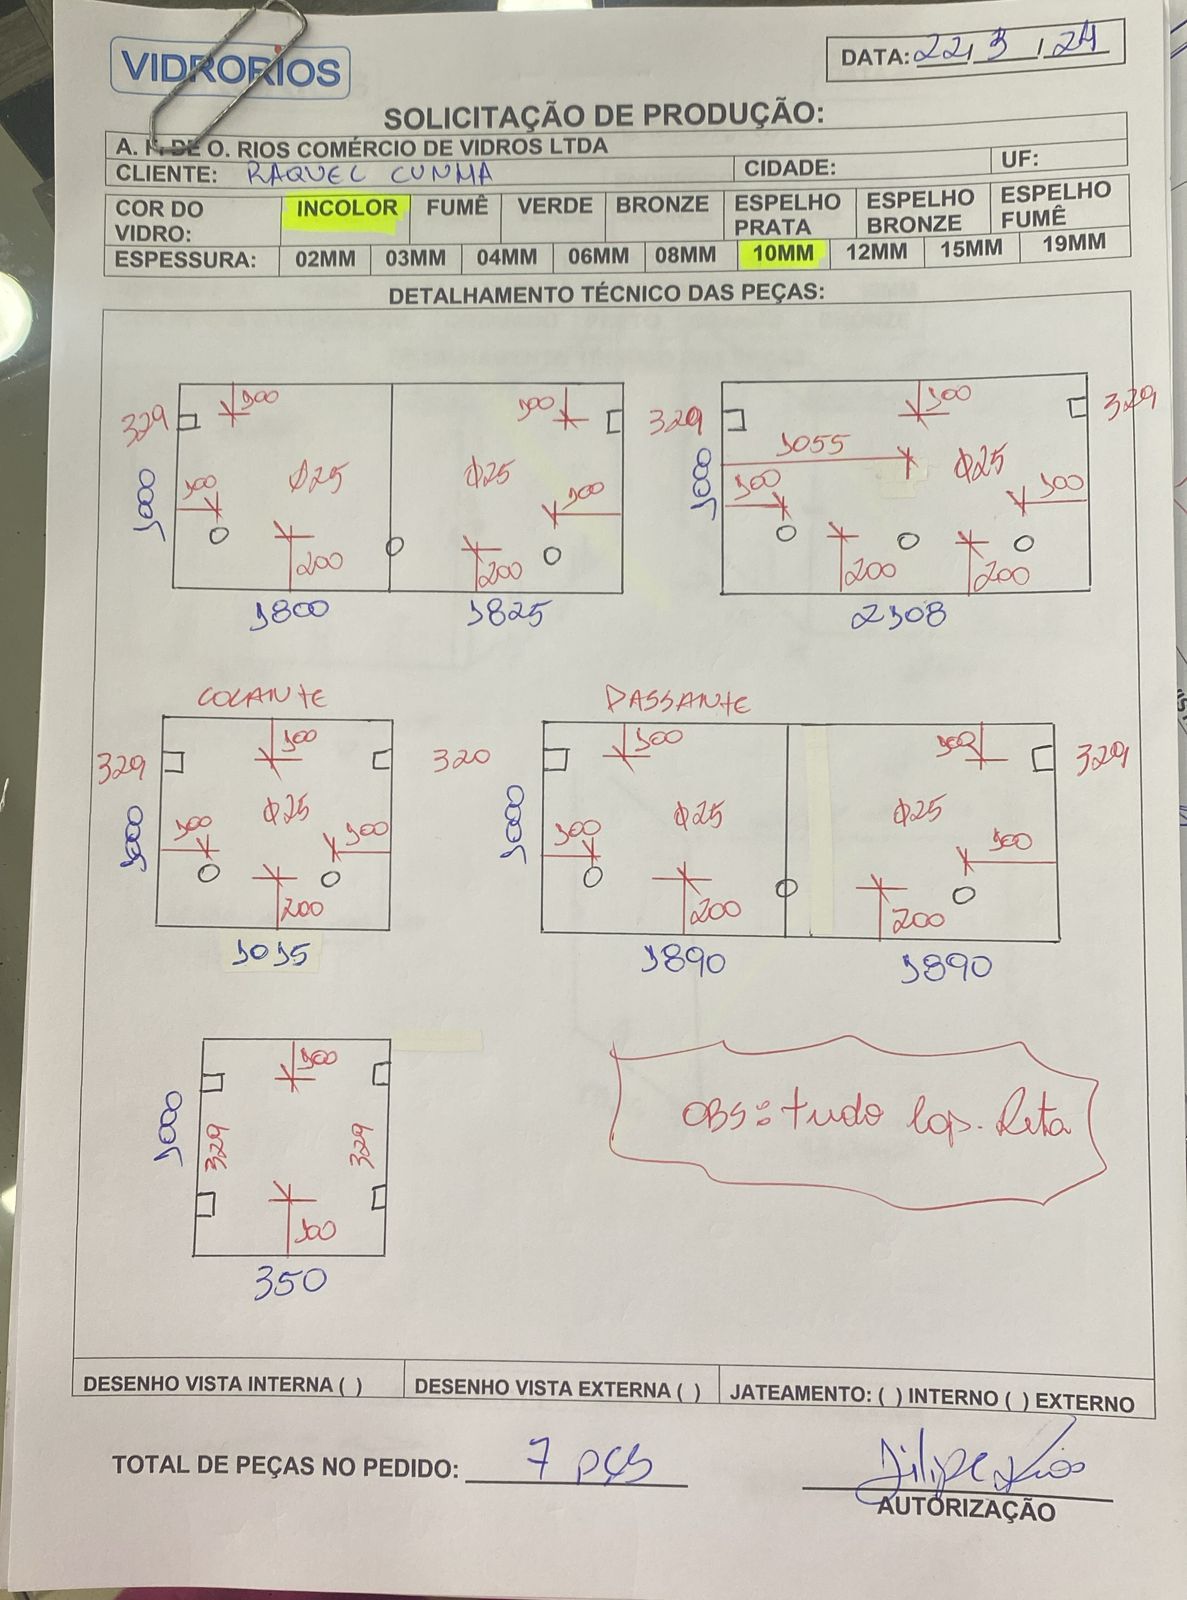 VIDRORIOS
DATA: 22, 3, 24
SOLICITAÇÃO DE PRODUÇÃO:
DE O. RIOS COMÉRCIO DE VIDROS LTDA
CLIENTE: RAQUEL CUNHA CIDADE: UF:
COR DO VIDRO: INCOLOR FUMÊ VERDE BRONZE ESPELHO PRATA ESPELHO BRONZE ESPELHO FUMÊ
ESPESSURA: 02MM 03MM 04MM 06MM 08MM 10MM 12MM 15MM 19MM
DETALHAMENTO TÉCNICO DAS PEÇAS:
329 100 100
1000 100 Ø25 Ø25 100
200 200
1800 1825
329 100 329
1055
1000 100 Ø25 100
200 200
2108
COLANTE
329 100 320
1000 100 Ø25 100
200
1015
PASSANTE
100 100 329
1000 100 Ø25 Ø25 100
200 200
1890 1890
100
1000 329 329
100
350
OBS: tudo lap. Reta
DESENHO VISTA INTERNA ( ) DESENHO VISTA EXTERNA ( ) JATEAMENTO: ( ) INTERNO ( ) EXTERNO
TOTAL DE PEÇAS NO PEDIDO: 7 pçs
Filipe Rios
AUTORIZAÇÃO